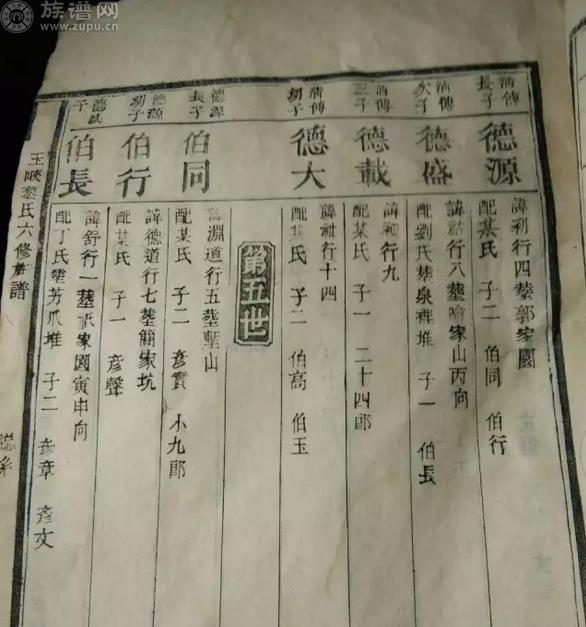 族谱网
www.zupu.cn
清傳長子
德源
諱初行四塟郭家園
配某氏 子二 伯同 伯行
清傳次子
德盛
諱祜行八塟喻家山丙向
配劉氏塟泉裡堆 子一 伯長
清傳三子
德載
行九
配某氏 子一 二十四郎
清傳幼子
德大
諱祉行十四
配某氏 子二 伯高 伯玉
第五世
德源長子
伯同
淵道行五塟塹山
配某氏 子二 彥實 小九郎
德源幼子
伯行
諱德道行七塟簡家坑
配某氏 子一 彥聲
德盛子
伯長
諱舒行一塟 家園寅申向
配丁氏塟芳爪堆 子二 彥章 彥文
玉峽黎氏六修族譜
總系